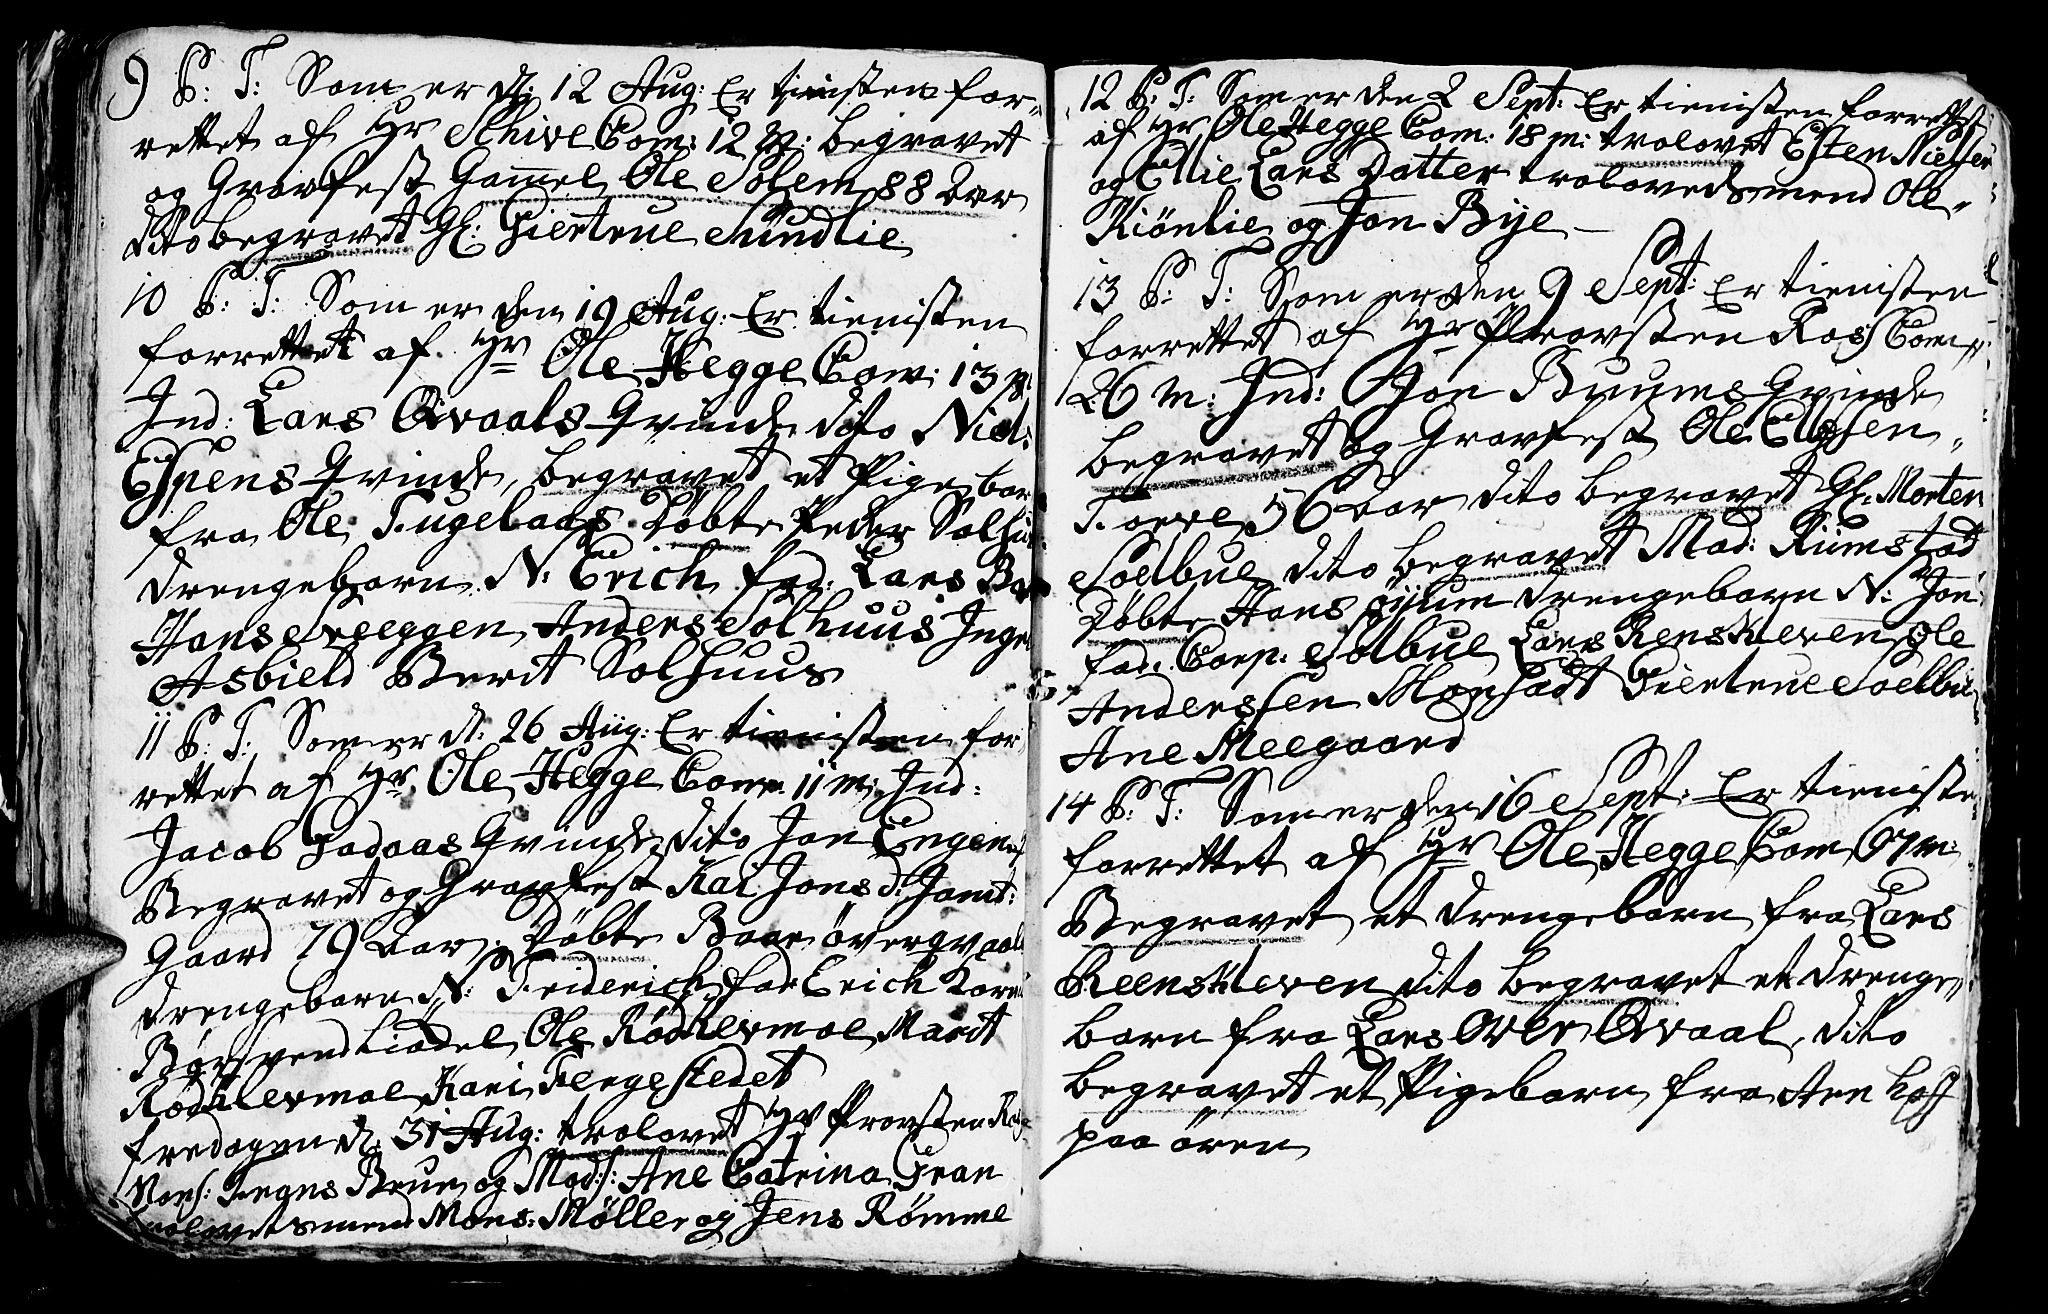 9 P: T: Som er d: 12 Aug: Er tienisten for-
rettet af Hr Schive Com: 12 m: begravet
og Gravfest Gamel Ole Solem 88 Aar
dito begravet Gl: Giertrue Sundlie
10 P: T: Som er den 19 Aug: Er tienisten
forrettet af Hr Ole Hegge Com: 13 m:
Ind: Lars Qvaals Qvinde, dito Niels
Espens Qvinde, begravet et Pigebarn
fra Ole Fugelaas Døbte Peder Solhuus
drengebarn N: Erich fad: Lars
Hans Sveeggen Anders Solhuus Inge
Asbield Berit Solhuus
11 P: T: Som er d: 26 Aug: Er tienisten for
rettet af Hr Ole Hegge Com: 11 m: Ind:
Jacob Gadaas Qvinde, dito Jon Engen
Begravet og Gravfest Kari Jons d: Jamt:
Gaard 79 Aar, Døbte Baar överqvaals
drengebarn N: Friderich fad: Erich
Ole Rødklevmoe Marit
Rødklevmoe Kari Fergestedet
fredagen d: 31 Aug: trolovet Hr Provsten
Mons: Bruun og Mads: Ane Catrina Gran
trolovetsmend Mons: Møller og Jens Rømme
12 P: T: Som er den 2 Sept: Er tienisten forrettet
af Hr Ole Hegge Com: 18 m: trolovet Esten Nielsen
og Ellie Lars Datter trolovedsmend Ole
Kiönlie og Jon Bye
13 P: T: Som er den 9 Sept: Er tienisten
forrettet af Hr Provsten Ross Com:
26 m: Ind: Jon Bruums Qvinde
begravet og Gravfest Ole Ellefsen
Torve 56 Aar dito begravet Gl: Morten
Soelbue dito begravet Mad: Rumstad
Døbte Hans Øyum drengebarn N: Jon
fad: Corp: Solbue Lars Renskleven Ole
Anderssen Monstadt Giertrue Soelbue
Ane Meegaard
14 P: T: Som er den 16 Sept: Er tieniste
forrettet af Hr Ole Hegge Com 67 m:
Begravet et drengebarn fra Lars
Reenskleven dito begravet et drenge
barn fra Lars Over Qvaal, dito
begravet et Pigebarn fra Aen hoff
paa ören